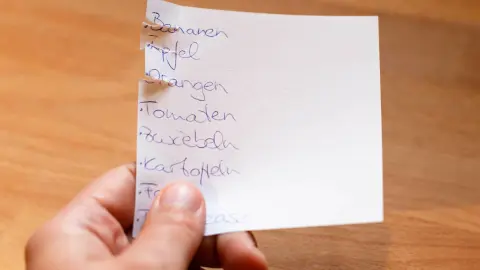 · Bananen
· Äpfel
· Orangen
· Tomaten
· Zwiebeln
· Kartoffeln